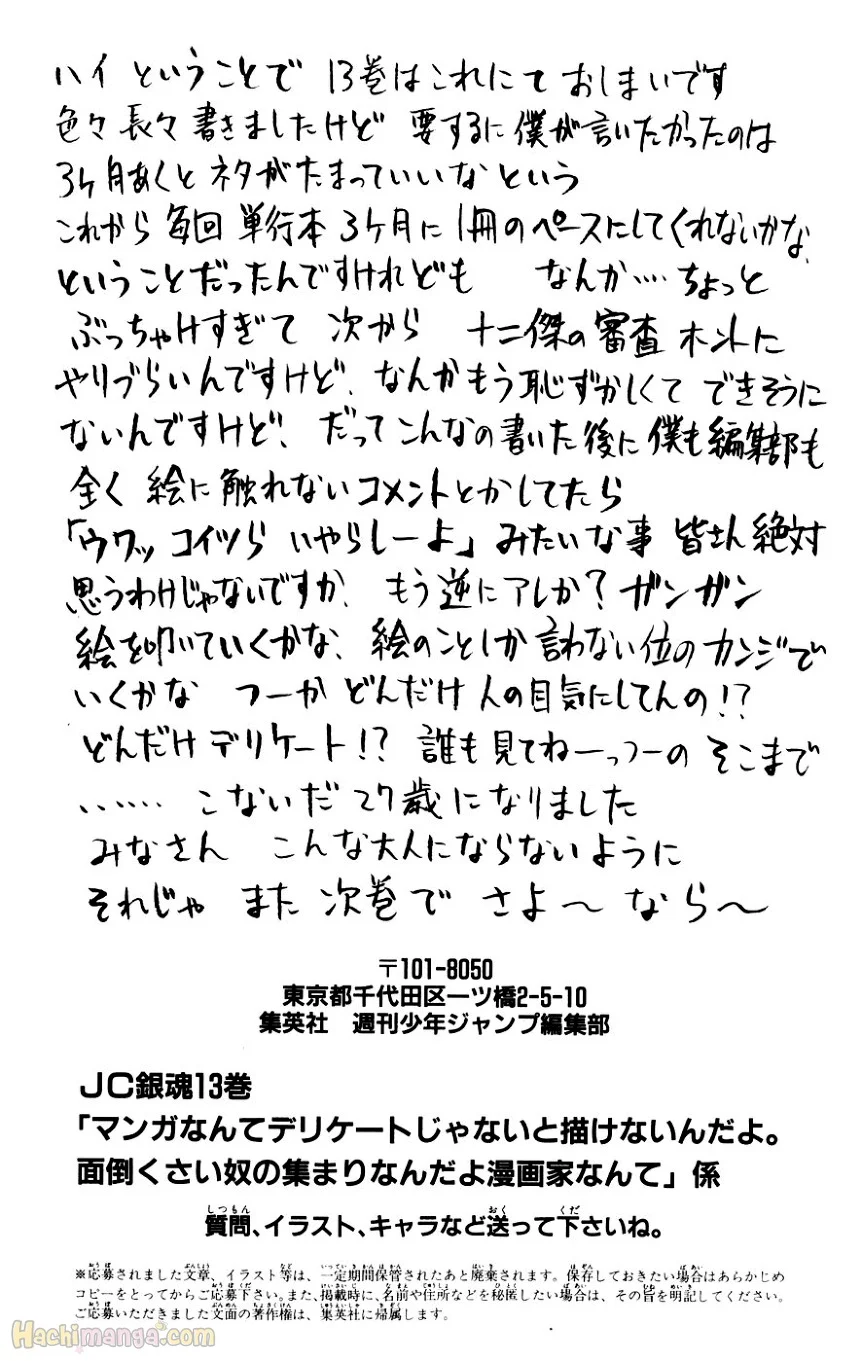 ハイ ということで 13巻はこれにて おしまいです
色々 長々 書きましたけど 要するに 僕が言いたかったのは
3ヶ月あくと ネタがたまっていいな という
これから 毎回 単行本 3ケ月に 1冊のペースにしてくれないかな、
ということだったんですけれども なんか‥‥ちょっと
ぶっちゃけすぎて 次から 十二傑の審査 ホントに
やりづらいんですけど、なんかもう恥ずかしくて できそうに
ないんですけど、だってこんなの書いた後に 僕も編集部も
全く 絵に触れないコメントとかしてたら
「ウワッ コイツら いやらしーよ」みたいな事 皆さん絶対
思うわけじゃないですか、もう逆にアレか?ガンガン
絵を叩いていくかな、絵のことしか言わない位のカンジで
いくかな つーか どんだけ人の目気にしてんの!?
どんだけデリケート!?誰も見てねーっつーの そこまで
‥‥‥ こないだ27歳になりました
みなさん こんな大人にならないように
それじゃ また 次巻で さよ〜なら〜
〒101-8050
東京都千代田区一ツ橋2-5-10
集英社 週刊少年ジャンプ編集部
JC銀魂13巻
「マンガなんてデリケートじゃないと描けないんだよ。
面倒くさい奴の集まりなんだよ漫画家なんて」係
質問、イラスト、キャラなど送って下さいね。
※応募されました文章、イラスト等は、一定期間保管されたあと廃棄されます。保存しておきたい場合はあらかじめ
コピーをとってからご応募下さい。また、掲載時に、名前や住所などを秘匿したい場合は、その旨を明記してください。
ご応募いただきました文面の著作権は、集英社に帰属します。
Hachimanga.com